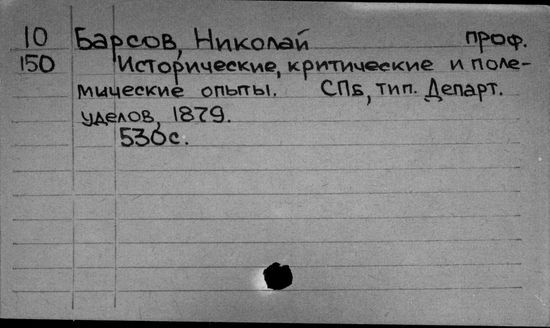 10 Барсов, Николай проф.
150 Исторические, критические и поле-
мические опыты. СПБ, тип. Департ.
уделов, 1879.
530с.